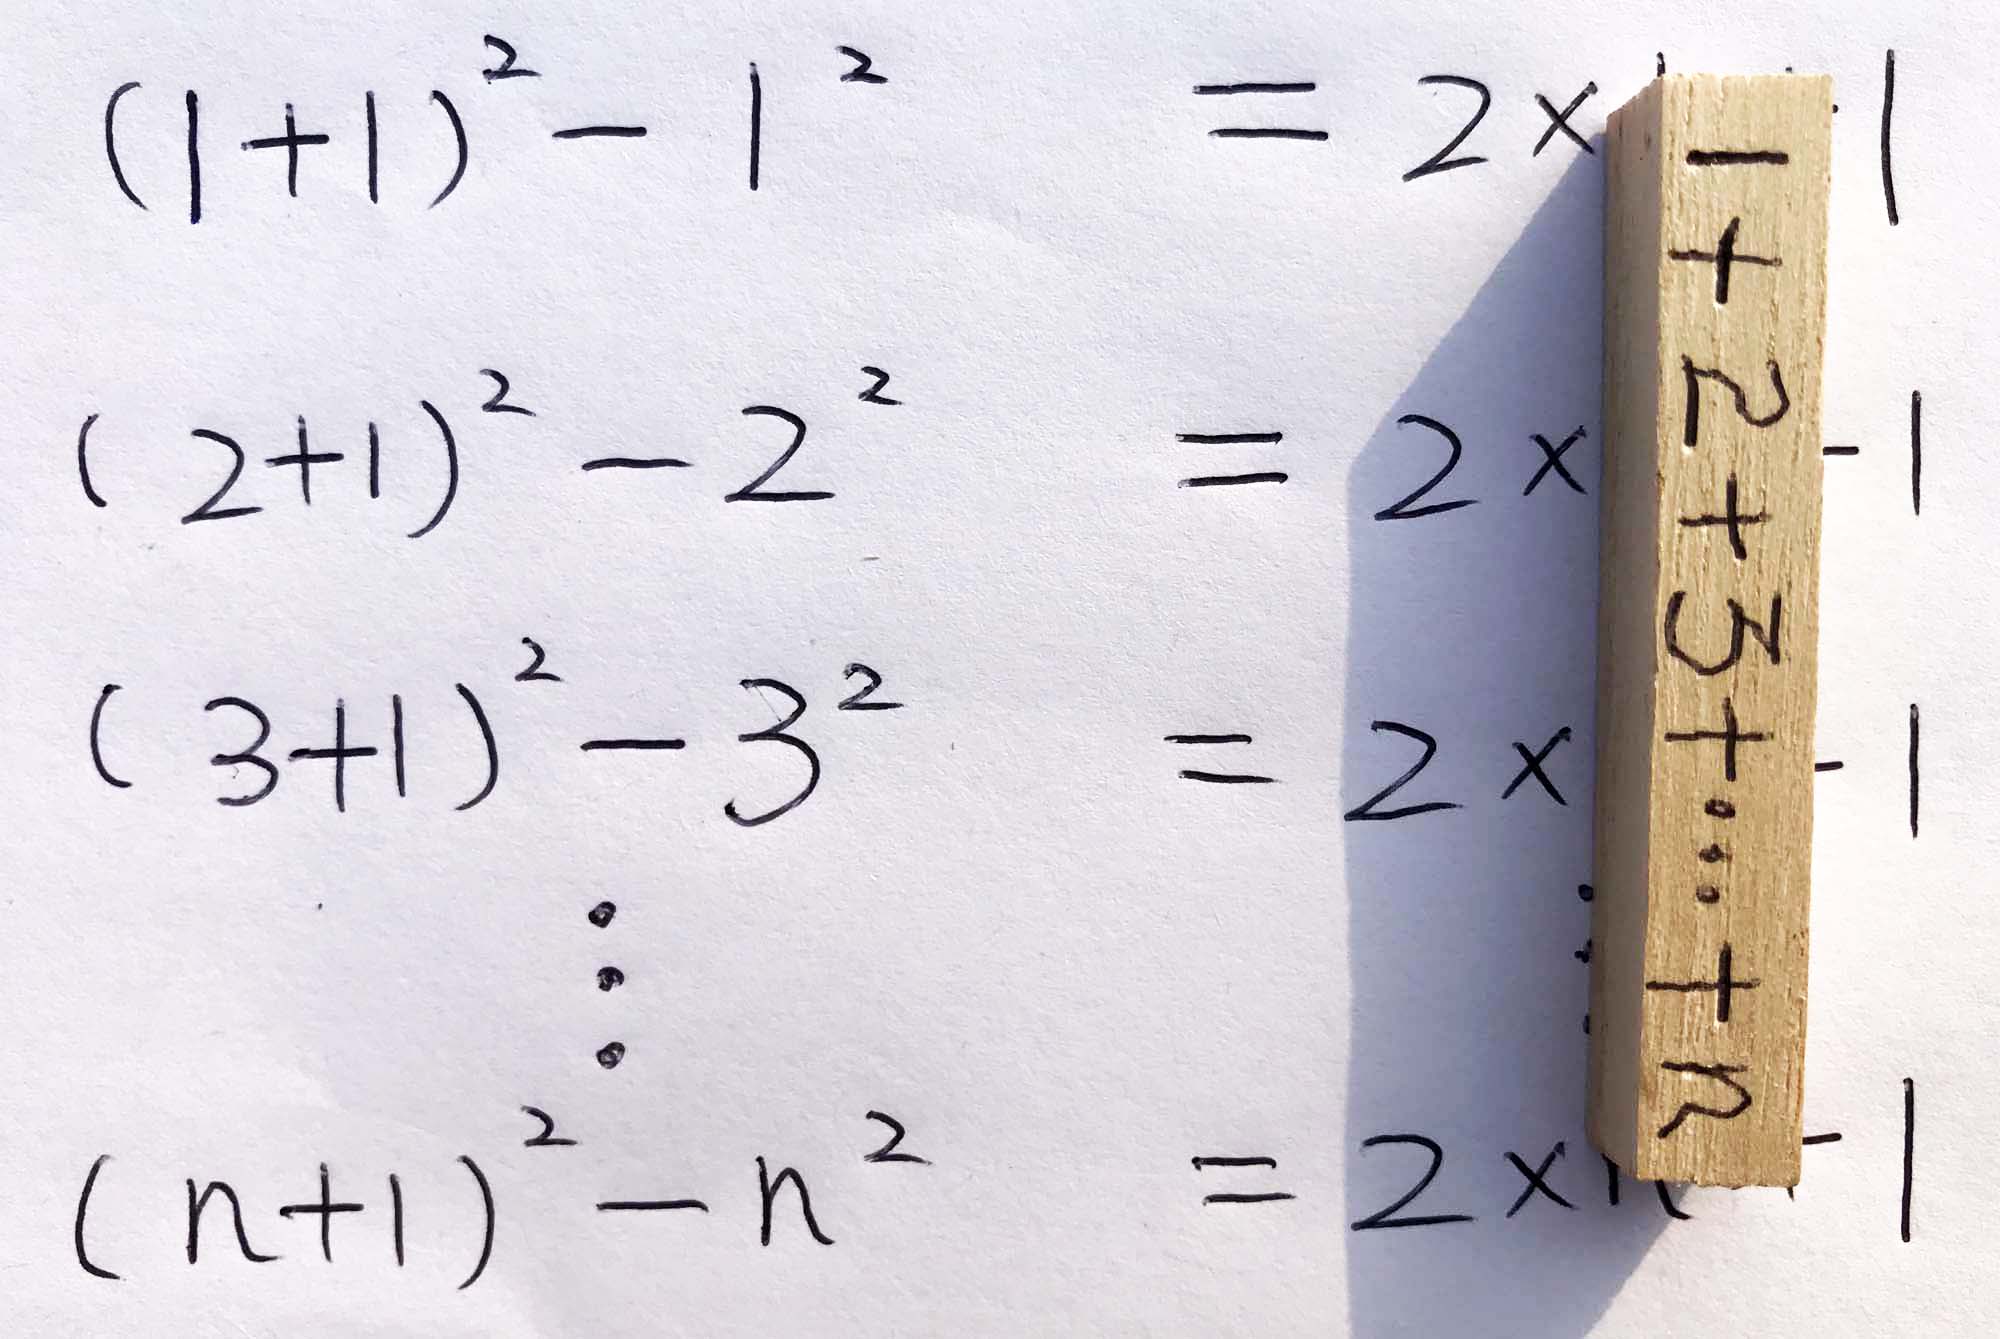 (1+1)² - 1² = 2× 1
(2+1)² - 2² = 2× - 1
(3+1)² - 3² = 2× - 1
⋮ ⋮
(n+1)² - n² = 2×n - 1
1+2+3+⋯+n